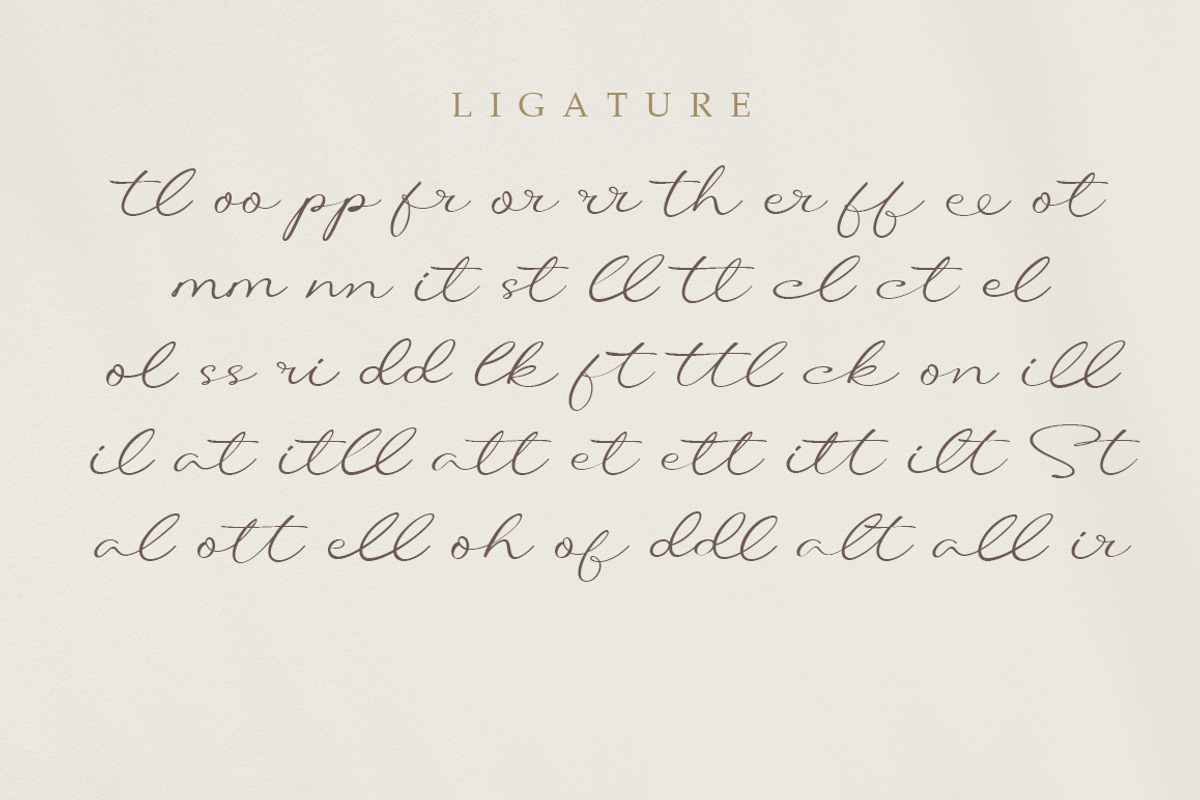 LIGATURE
tl oo pp fr or rr th er ff ee ot
mm nn it st ll tt cl ct el
ol ss ri dd lk ft ttl ck on ill
il at itll att et ett itt ilt St
al ott ell oh of ddl alt all ir